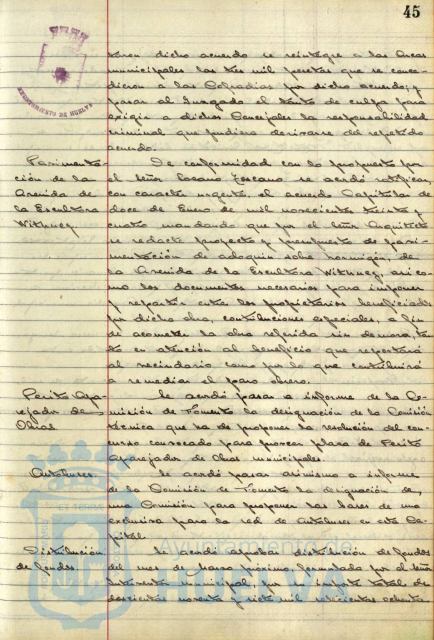 45
AYUNTAMIENTO DE HUELVA
dicho acuerdo se reintegre a las Arcas
municipales las tres mil pesetas que se conce-
dieron a las Cofradías por dicho acuerdo, y
pasar al Juzgado el tanto de culpa para
exigir a dichos Concejales la responsabilidad
criminal que pudiera derivarse del repetido
acuerdo.
Pavimenta-
ción de la
Avenida de
la Escultora
Withney
De conformidad con lo propuesto por
el Señor Lozano se acordó ratificar,
con caracter urgente, el acuerdo Capitular de
doce de Enero de mil novecientos treinta y
cuatro mandando que por el Señor Arquitecto
se redacte proyecto y presupuesto de pavi-
mentación de adoquin sobre hormigón, de
la Avenida de la Escultora Withney, asi co-
mo los documentos necesarios para imponer
y repartir entre los propietarios beneficiados
por dicha obra, contribuciones especiales, a fin
de acometer la obra referida sin demora, tan-
to en atención al beneficio que reportará
al vecindario como por lo que contribuirá
a remediar el paro obrero.
Perito Apa-
rejador de
Obras
Se acordó pasar a informe de la Co-
misión de Fomento la designación de la Comisión
técnica que ha de proponer la resolución del con-
curso convocado para proveer plaza de Perito
Aparejador de Obras municipales.
Autobuses.
Se acordó pasar asimismo a informe
de la Comisión de Fomento la designación de
una Comisión para proponer las bases de una
exclusiva para la red de Autobuses en esta Ca-
pital.
Distribución
de fondos
Se acordó aprobar distribución de fondos
del mes de Marzo próximo, formulada por el Señor
Interventor municipal, por un importe total de
doscientas noventa y siete mil setecientas ochenta
Ayuntamiento de
HUELVA